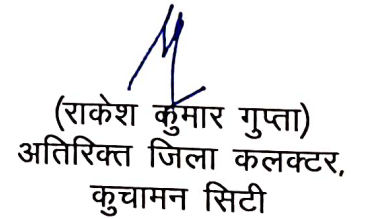 (राकेश कुमार गुप्ता)
अतिरिक्त जिला कलक्टर,
कुचामन सिटी